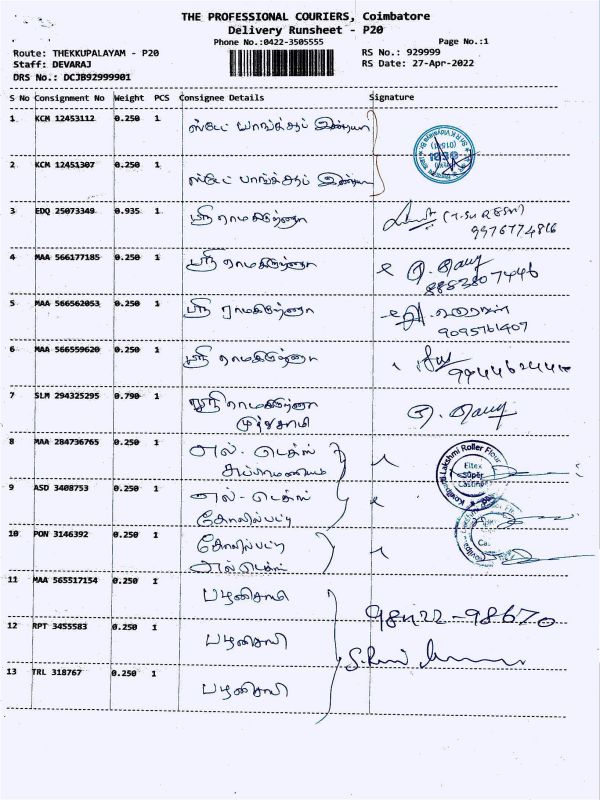 THE PROFESSIONAL COURIERS, Coimbatore
Delivery Runsheet - P20
Phone No.:0422-3505555 Page No.:1
Route: THEKKUPALAYAM - P20 RS No.: 929999
Staff: DEVARAJ RS Date: 27-Apr-2022
DRS No.: DCJB92999901
S No Consignment No Weight PCS Consignee Details Signature
1 KCM 12453112 0.250 1 ஸ்டேட் பாங்க் ஆப் இண்டியா
2 KCM 12451307 0.250 1 ஸ்டேட் பாங்க் ஆப் இண்டியா
3 EDQ 25073349 0.935 1 ஸ்ரீ ராமகிருஷ்ணா
9976774816
4 MAA 566177185 0.250 1 ஸ்ரீ ராமகிருஷ்ணா
8883807446
5 MAA 566562053 0.250 1 ஸ்ரீ ராமகிருஷ்ணா
9095761407
6 MAA 566559620 0.250 1 ஸ்ரீ ராமகிருஷ்ணா
7 SLM 294325295 0.790 1 ஸ்ரீ ராமகிருஷ்ணா
முத்துசாமி
8 MAA 284736765 0.250 1 எல்-டெக்ஸ்
சுப்ரமணியம்
Lakshmi Roller Flour
Eltex
Super
Casting
9 ASD 3408753 0.250 1 எல்-டெக்ஸ்
கோவில்பட்டி
10 PON 3146392 0.250 1 கோவில்பட்டி
எல்டெக்ஸ்
11 MAA 565517154 0.250 1 பழனிசாமி
12 RPT 3455583 0.250 1 பழனிசாமி
13 TRL 318767 0.250 1 பழனிசாமி